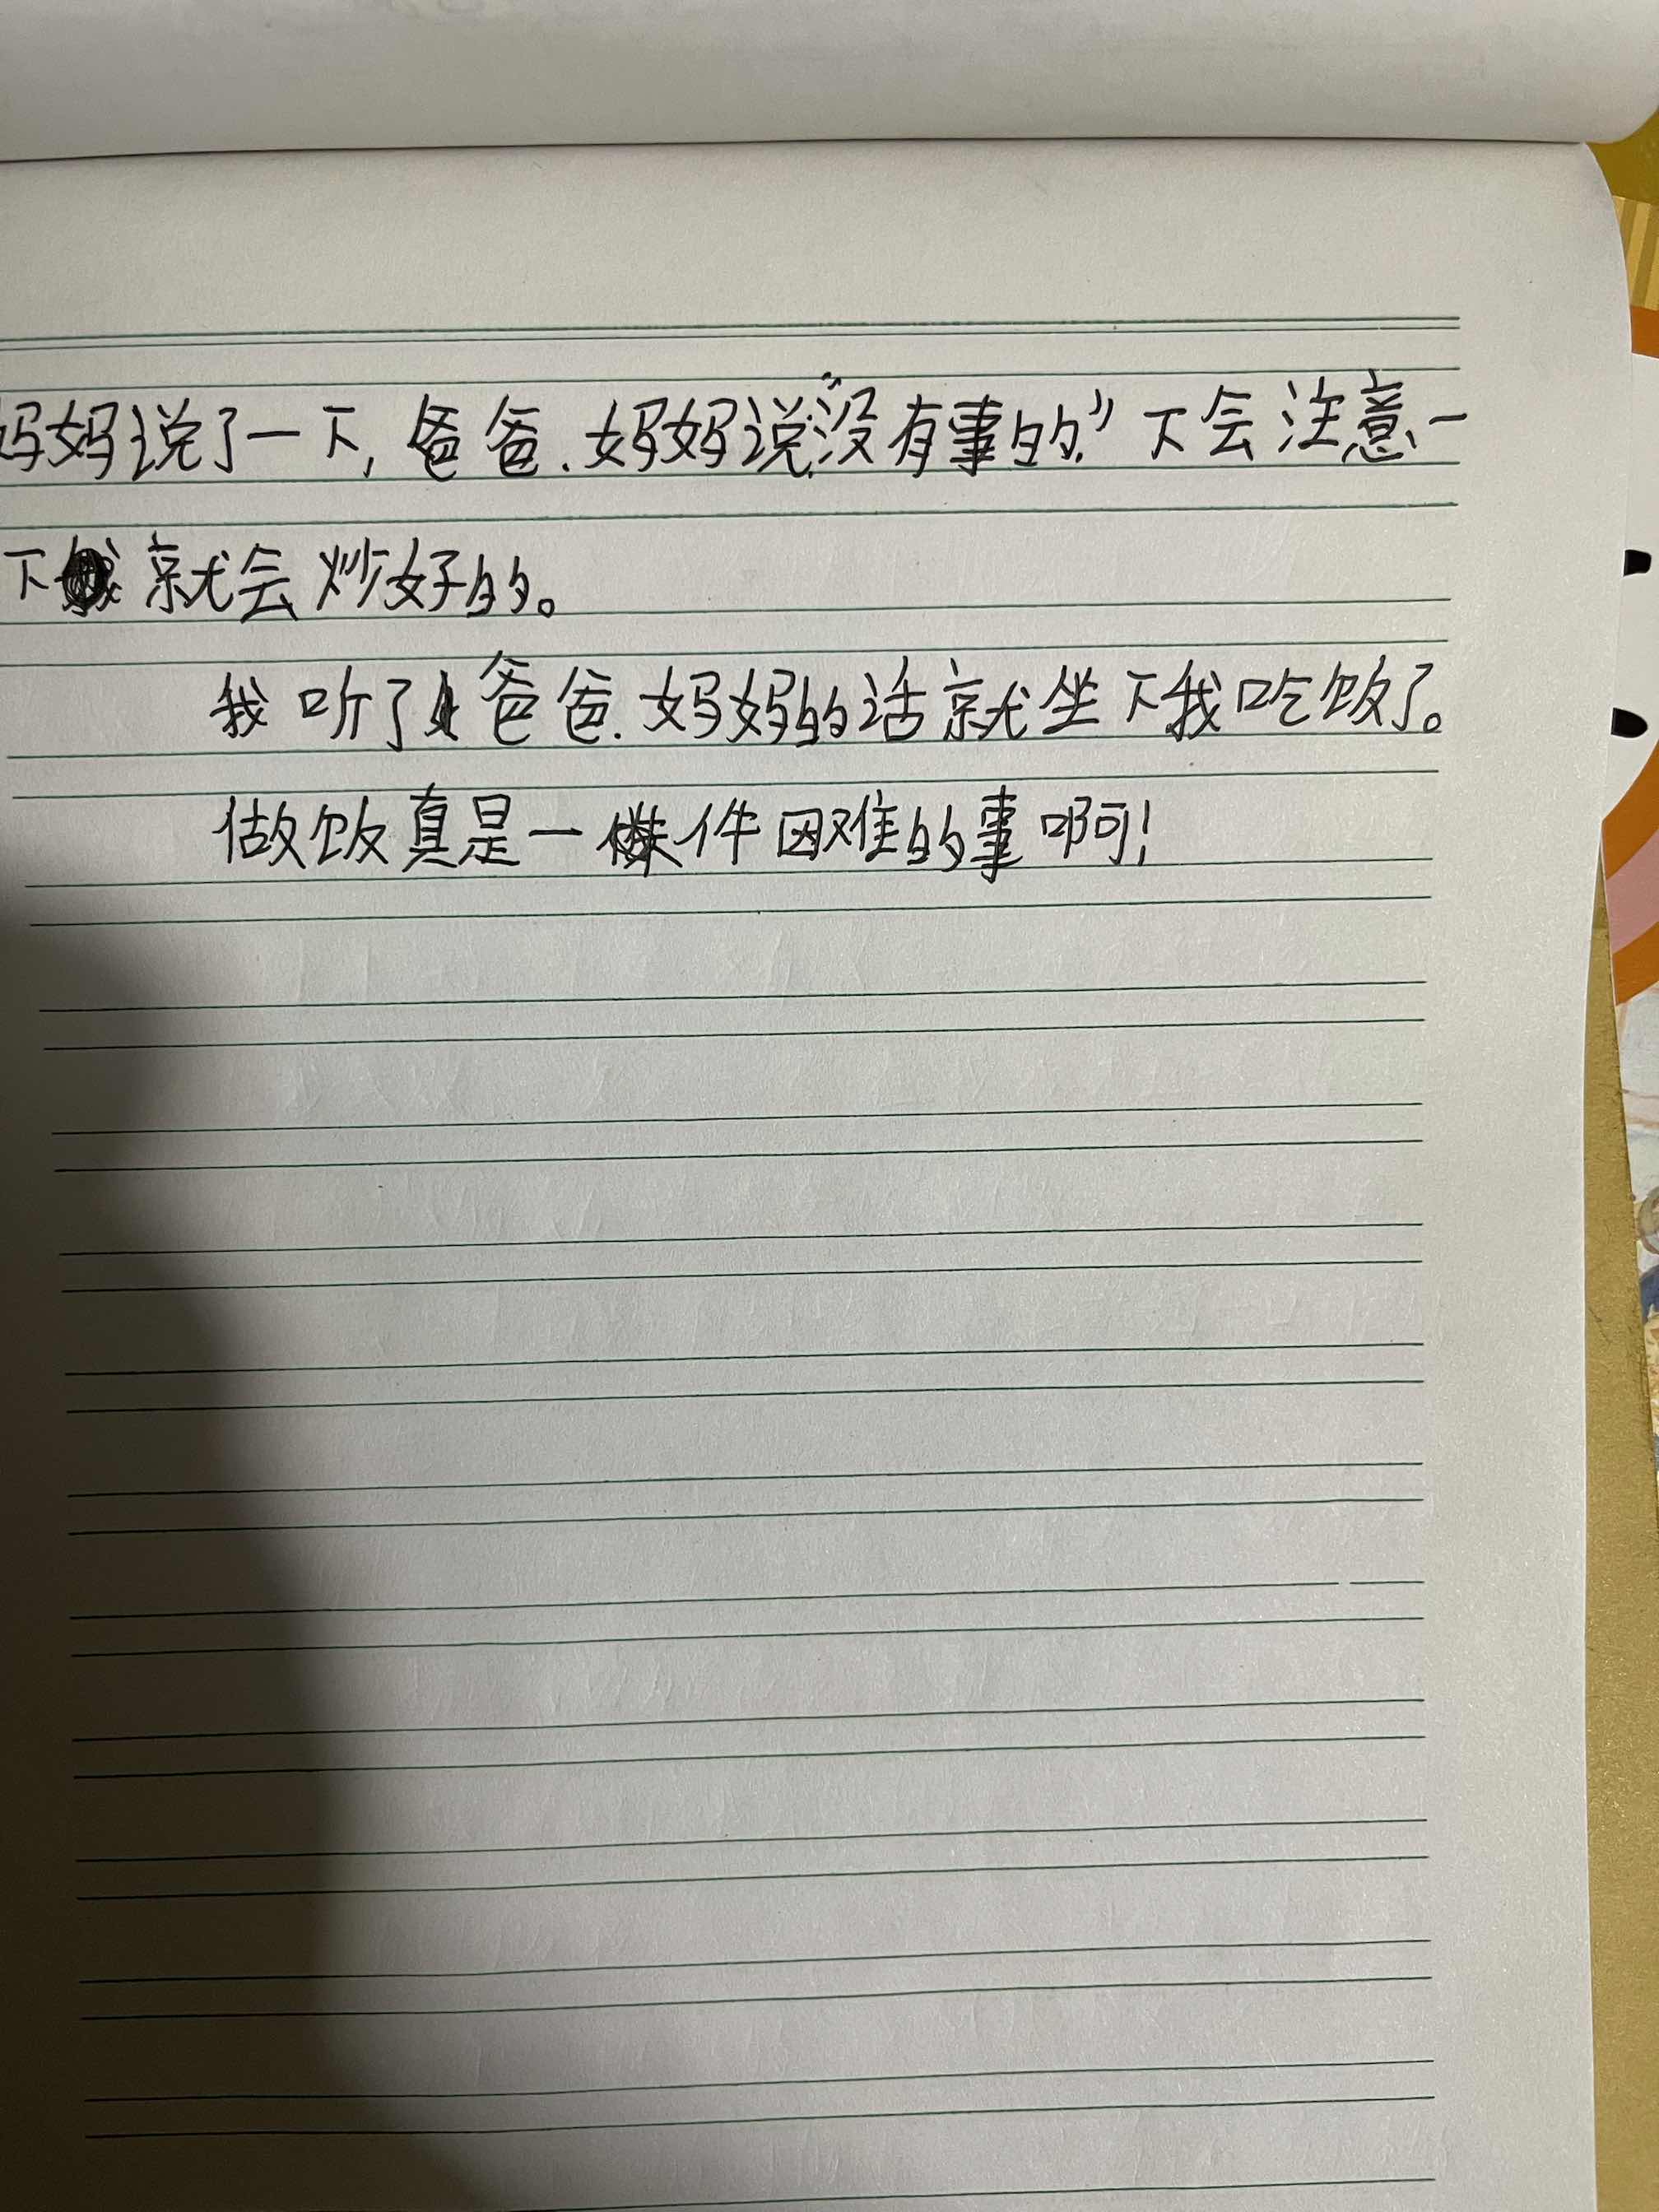 妈妈说了一下,爸爸.妈妈说:“没有事的.”下会注意一
下就会炒好的。
我听了爸爸.妈妈的话就坐下我吃饭了。
做饭真是一件因难的事啊!